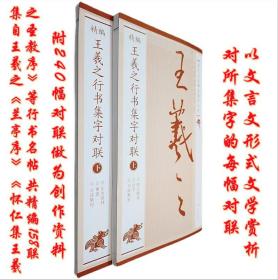 集自王羲之《兰亭序》《怀仁集王羲
之圣教序》等行书名帖 共精编158联
附240幅对联做为创作资料
精编
王羲之行书集字对联
下
精编
王羲之行书集字对联
王羲之
对所集字的每幅对联
以文言文形式文学赏析